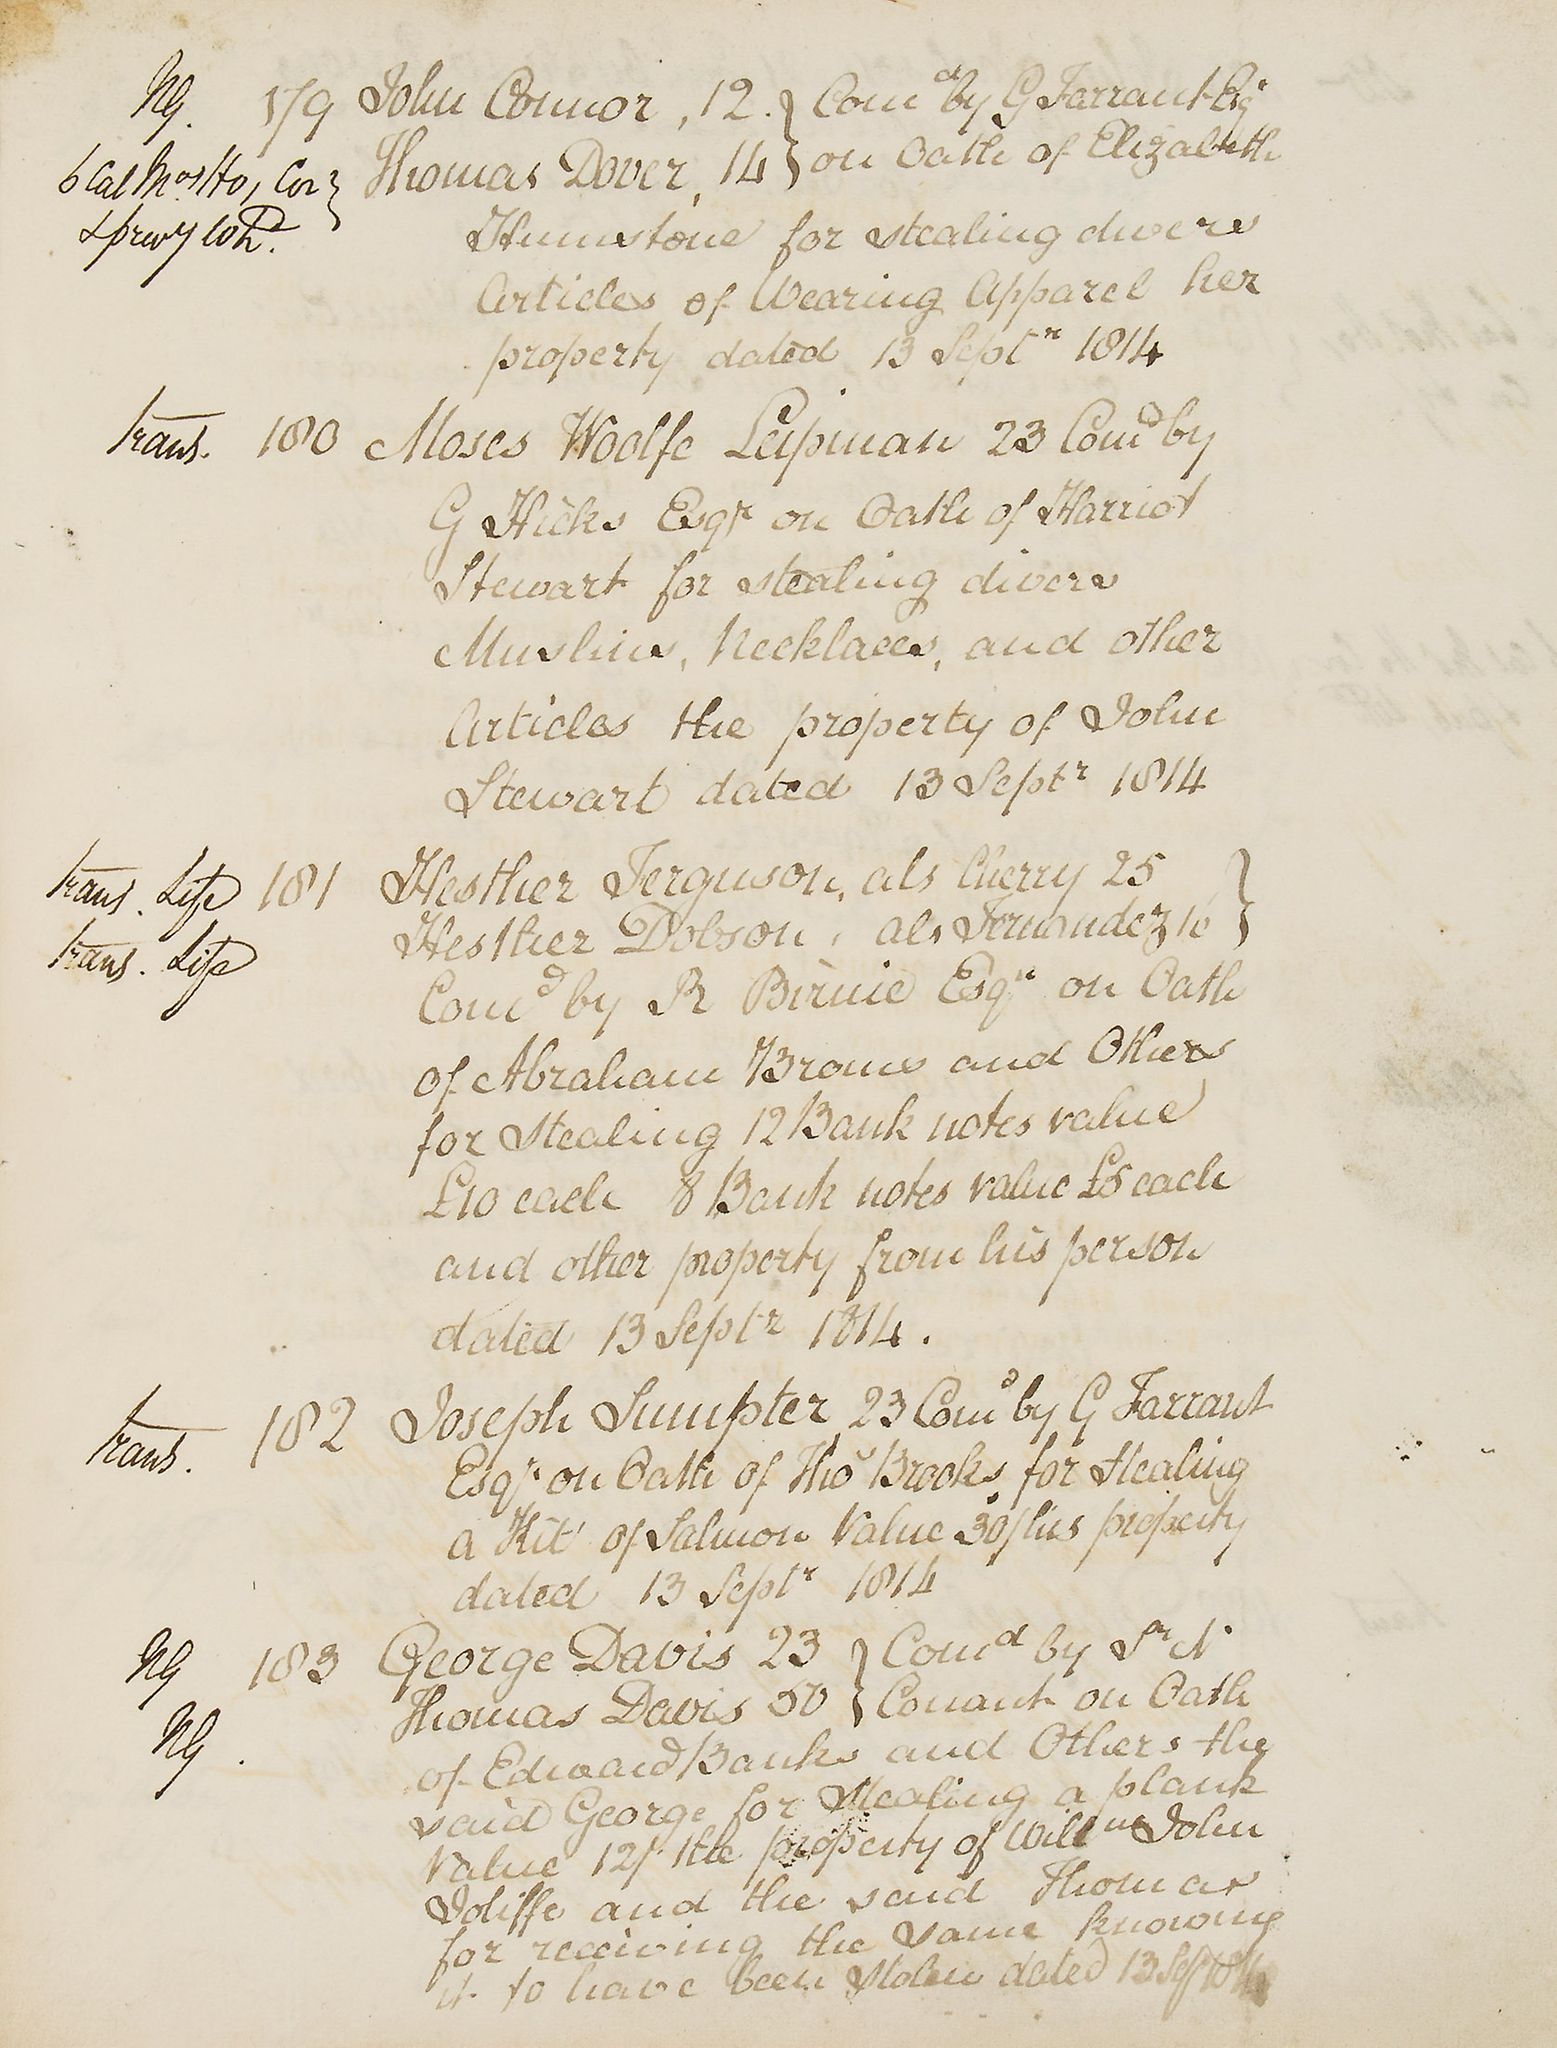 NG. 179 John Connor, 12. } Comd by G Farrant Esqr
6 Cal Mos Ho, Cor } Thomas Dover, 14 } on Oath of Elizabeth
& privy Wh. Humstone for stealing divers
Articles of Wearing Apparel her
property dated 13 Septr 1814
Trans. 180 Moses Woolfe Leipman 23 Comd by
G Hicks Esqr on Oath of Harriot
Stewart for stealing divers
Muslins, Necklaces, and other
Articles the property of John
Stewart dated 13 Septr 1814
Trans. Life 181 Hesther Ferguson, als Cherry 25 }
Trans. Life Hesther Dobson, als Fernandez 16 }
Comd by R Birnie Esqr on Oath
of Abraham Brown and Others
for Stealing 12 Bank notes value
£10 each 8 Bank notes value £5 each
and other property from his person
dated 13 Septr 1814.
Trans. 182 Joseph Sumpter, 23 Comd by G Farrant
Esqr on Oath of Thos Brooks, for Stealing
a Kit of Salmon Value 30/ his property
dated 13 Septr 1814
NG 183 George Davis 23 } Comd by Sr N
NG. Thomas Davis 50 } Conant on Oath
of Edward Banks and Others the
said George for Stealing a plank
Value 12/ the property of Willm John
Joliffe and the said Thomas
for receiving the same knowing
it to have been Stolen dated 13 Sep 1814